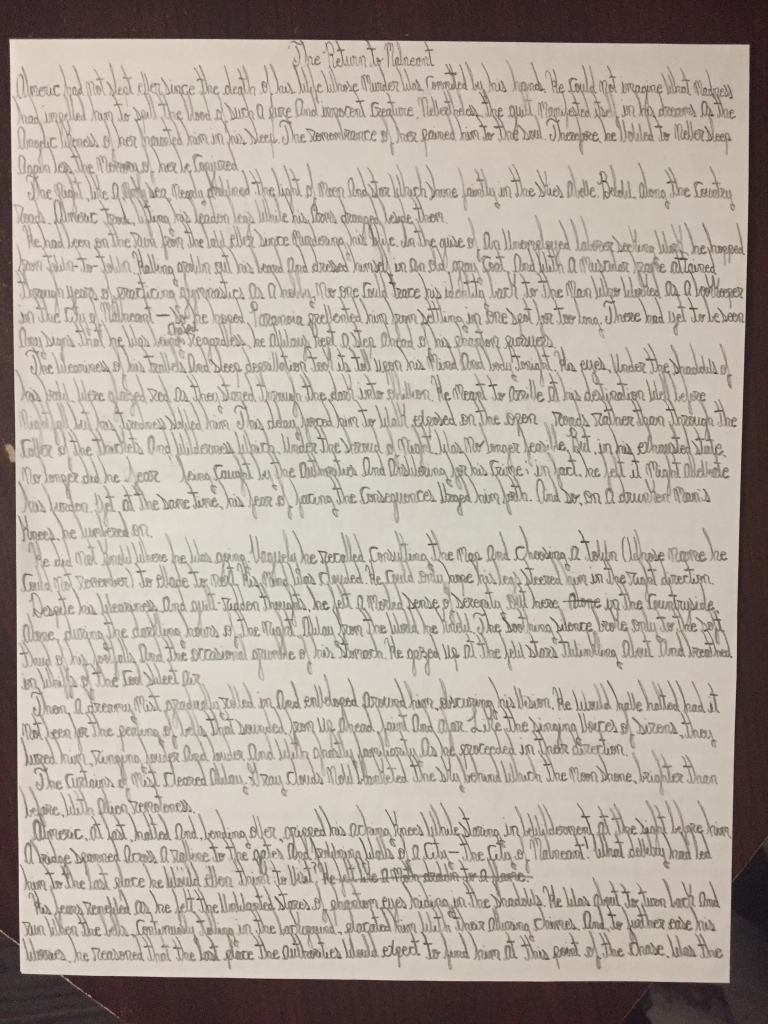 The Return to Malneant
Almeric had not slept ever since the death of his wife whose murder was commited by his hands. He could not imagine what madness
had impelled him to spill the blood of such a pure and innocent creature. Nevertheless, the guilt manifested itself in his dreams as the
angelic likeness of her haunted him in his sleep. The remembrance of her pained him to the soul. Therefore, he vowed to never sleep
again less the memory of her be conjured.
The night, like a sea, nearly drowned the light of moon and star which shone faintly in the skies above. Behold, along the country
roads, Almeric trod, lifting his leaden legs while his arms dragged beside them.
He had been on the run from the law ever since murdering his wife. In the guise of an unemployed laborer seeking work, he hopped
from town-to-town. Having grown out his beard and dressed himself in an old, gray coat, and with a muscular frame attained
through years of practicing gymnastics as a hobby, no one could trace his identity back to the man who worked as a bookkeeper
in the City of Malneant—so he hoped. Paranoia prevented him from settling in one spot for too long. There had yet to be seen
any signs that he was being chased. Regardless, he always kept a step ahead of his phantom pursuers.
The weariness of his travels and sleep deprivation took its toll upon his mind and body tonight. His eyes, under the shadows of
his brow, were glazed red as they stared through the dark into oblivion. He meant to arrive at his destination well before
nightfall but his tiredness slowed him. This delay forced him to walk exposed on the open roads rather than through the
cover of the thickets and wilderness which, under the shroud of night, was no longer feasible. But, in his exhausted state,
no longer did he fear being caught by the authorities and answering for his crime; in fact, he felt it might alleviate
his burden. Yet, at the same time, his fear of facing the consequences urged him forth. And so, on a drunken man's
knees, he lumbered on.
He did not know where he was going. Vaguely, he recalled consulting the map and choosing a town (whose name he
could not remember) to evade to next. His mind was clouded. He could only hope his legs steered him in the right direction.
Despite his weariness and guilt-ridden thoughts, he felt a morbid sense of serenity out here alone in the countryside,
alone, during the darkling hours of the night, away from the world he knew. The soothing silence broke only to the soft
thud of his footfalls and the occasional grumble of his stomach. He gazed up at the few stars twinkling about and breathed
in whiffs of the cool sweet air.
Then, a dreamy mist gradually rolled in and enveloped around him, obscuring his vision. He would have halted had it
not been for the pealing of bells that sounded from up ahead, faint and afar. Like the singing voices of sirens, they
lured him, ringing louder and louder and with ghostly familiarity as he proceeded in their direction.
The curtains of mist cleared away. Gray clouds now blanketed the sky behind which the moon shone, brighter than
before, with alien remoteness.
Almeric, at last, halted and, bending over, gripped his aching knees while staring in bewilderment at the sight before him.
A bridge spanned across a ravine to the gates and walls of a city—the City of Malneant! What devilry had led
him to the last place he would ever think to visit? He felt like a moth drawn to a flame.
His fears renewed as he felt the unwanted stares of phantom eyes hiding in the shadows. He was about to turn back and
run when the bells, continuously tolling in the background, placated him with their alluring chimes. And, to further ease his
worries, he reasoned that the last place the authorities would expect to find him at this point of the chase, was the